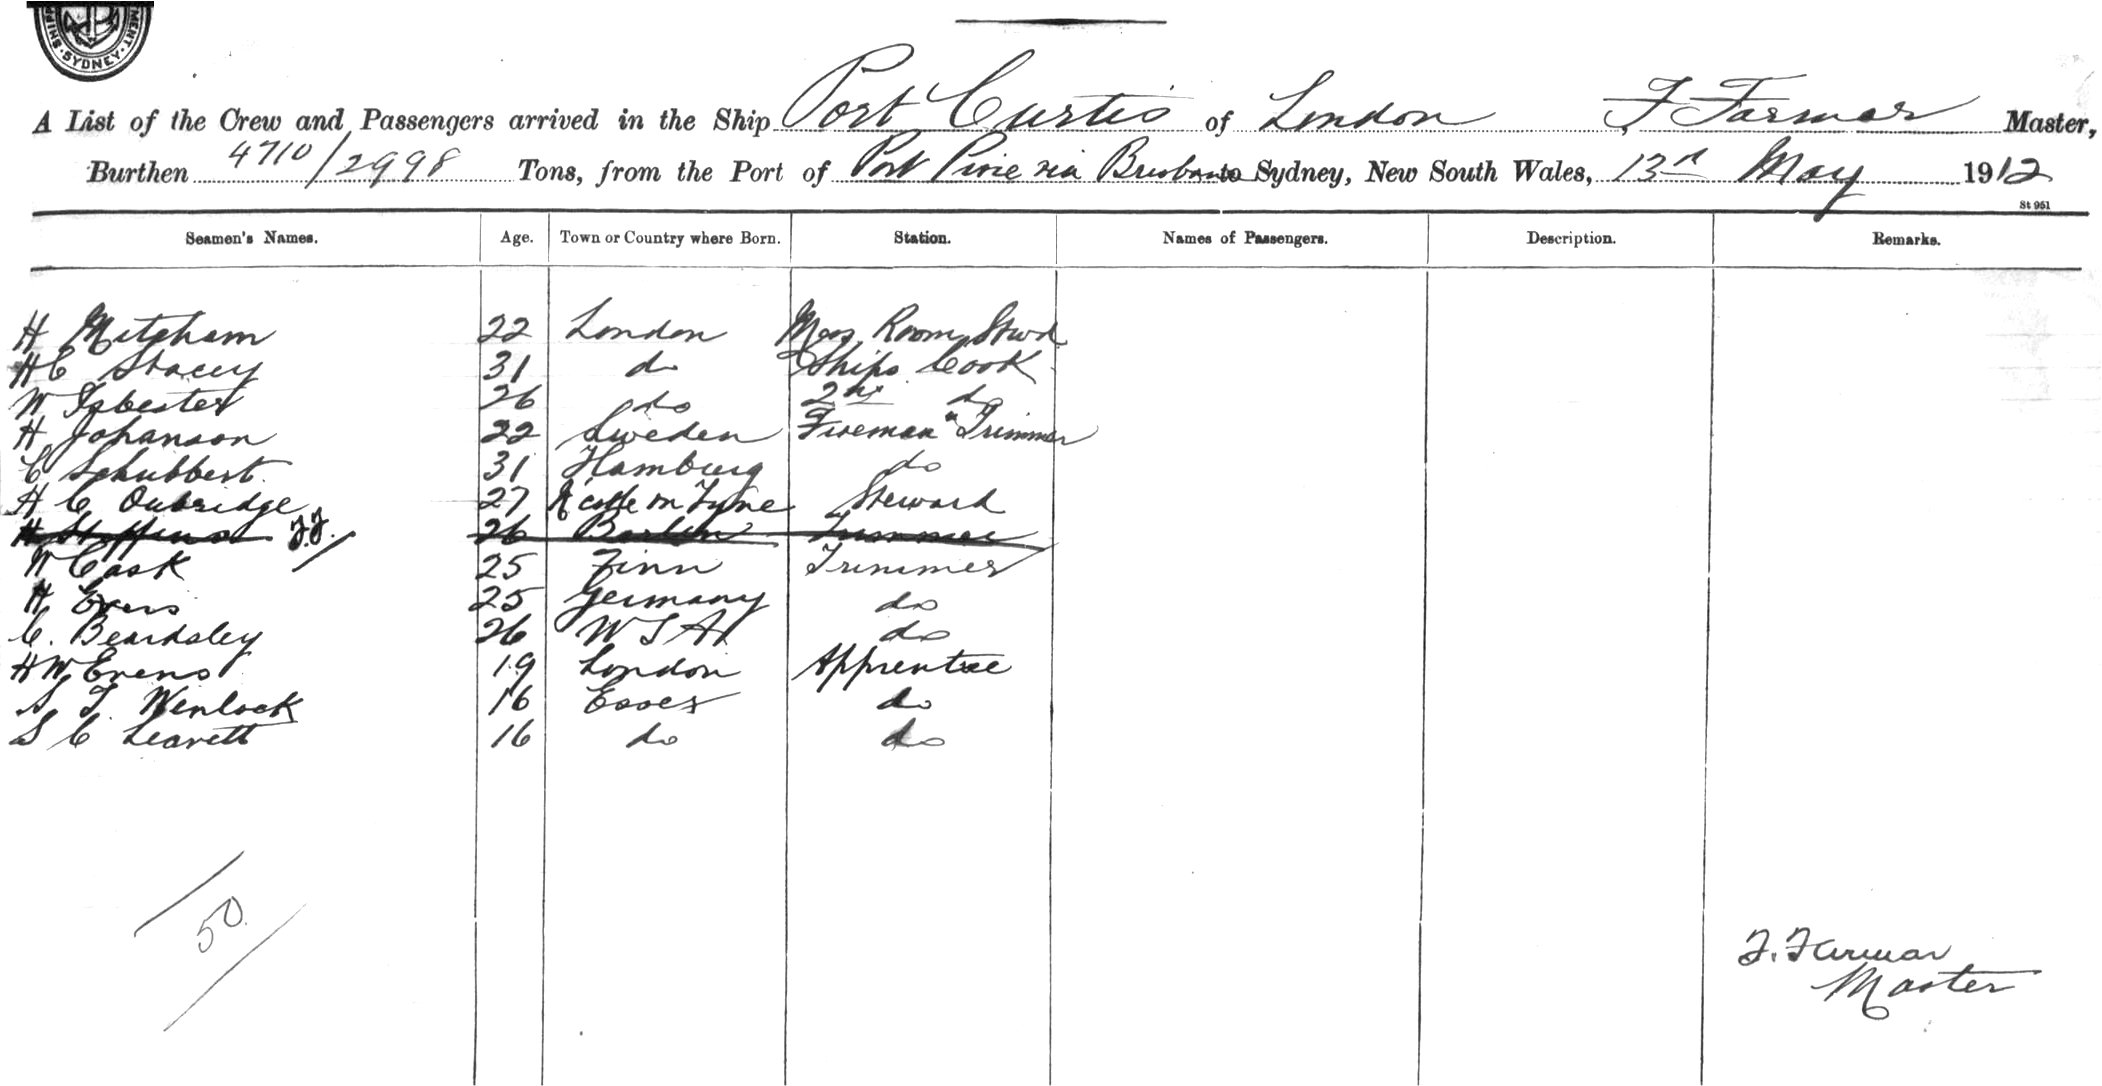 SHIPP MENT · SYDNEY ·
A List of the Crew and Passengers arrived in the Ship Port Curtis of London F Farmar Master,
Burthen 4710/2998 Tons, from the Port of Port Pirie via Brisbane to Sydney, New South Wales, 13th May 1912
St 951
Seamen's Names. Age. Town or Country where Born. Station. Names of Passengers. Description. Remarks.
H Mitcham 22 London Mess Room Stwd
H C Stacey 31 do Ships Cook
W Isbester 26 do 2nd do
H Johanson 22 Sweden Fireman & Trimmer
C Schubbert 31 Hamburg do
H C Oubridge 27 N castle on Tyne Steward
H Steffens F.F. 26 Berlin Trimmer
W Cask 25 Finn Trimmer
H Evers 25 Germany do
C. Beardsley 26 do
H W Evens 19 London Apprentice
S T Wenlock 16 Essex do
S C Leavett 16 do do
50
F. Farmar
Master